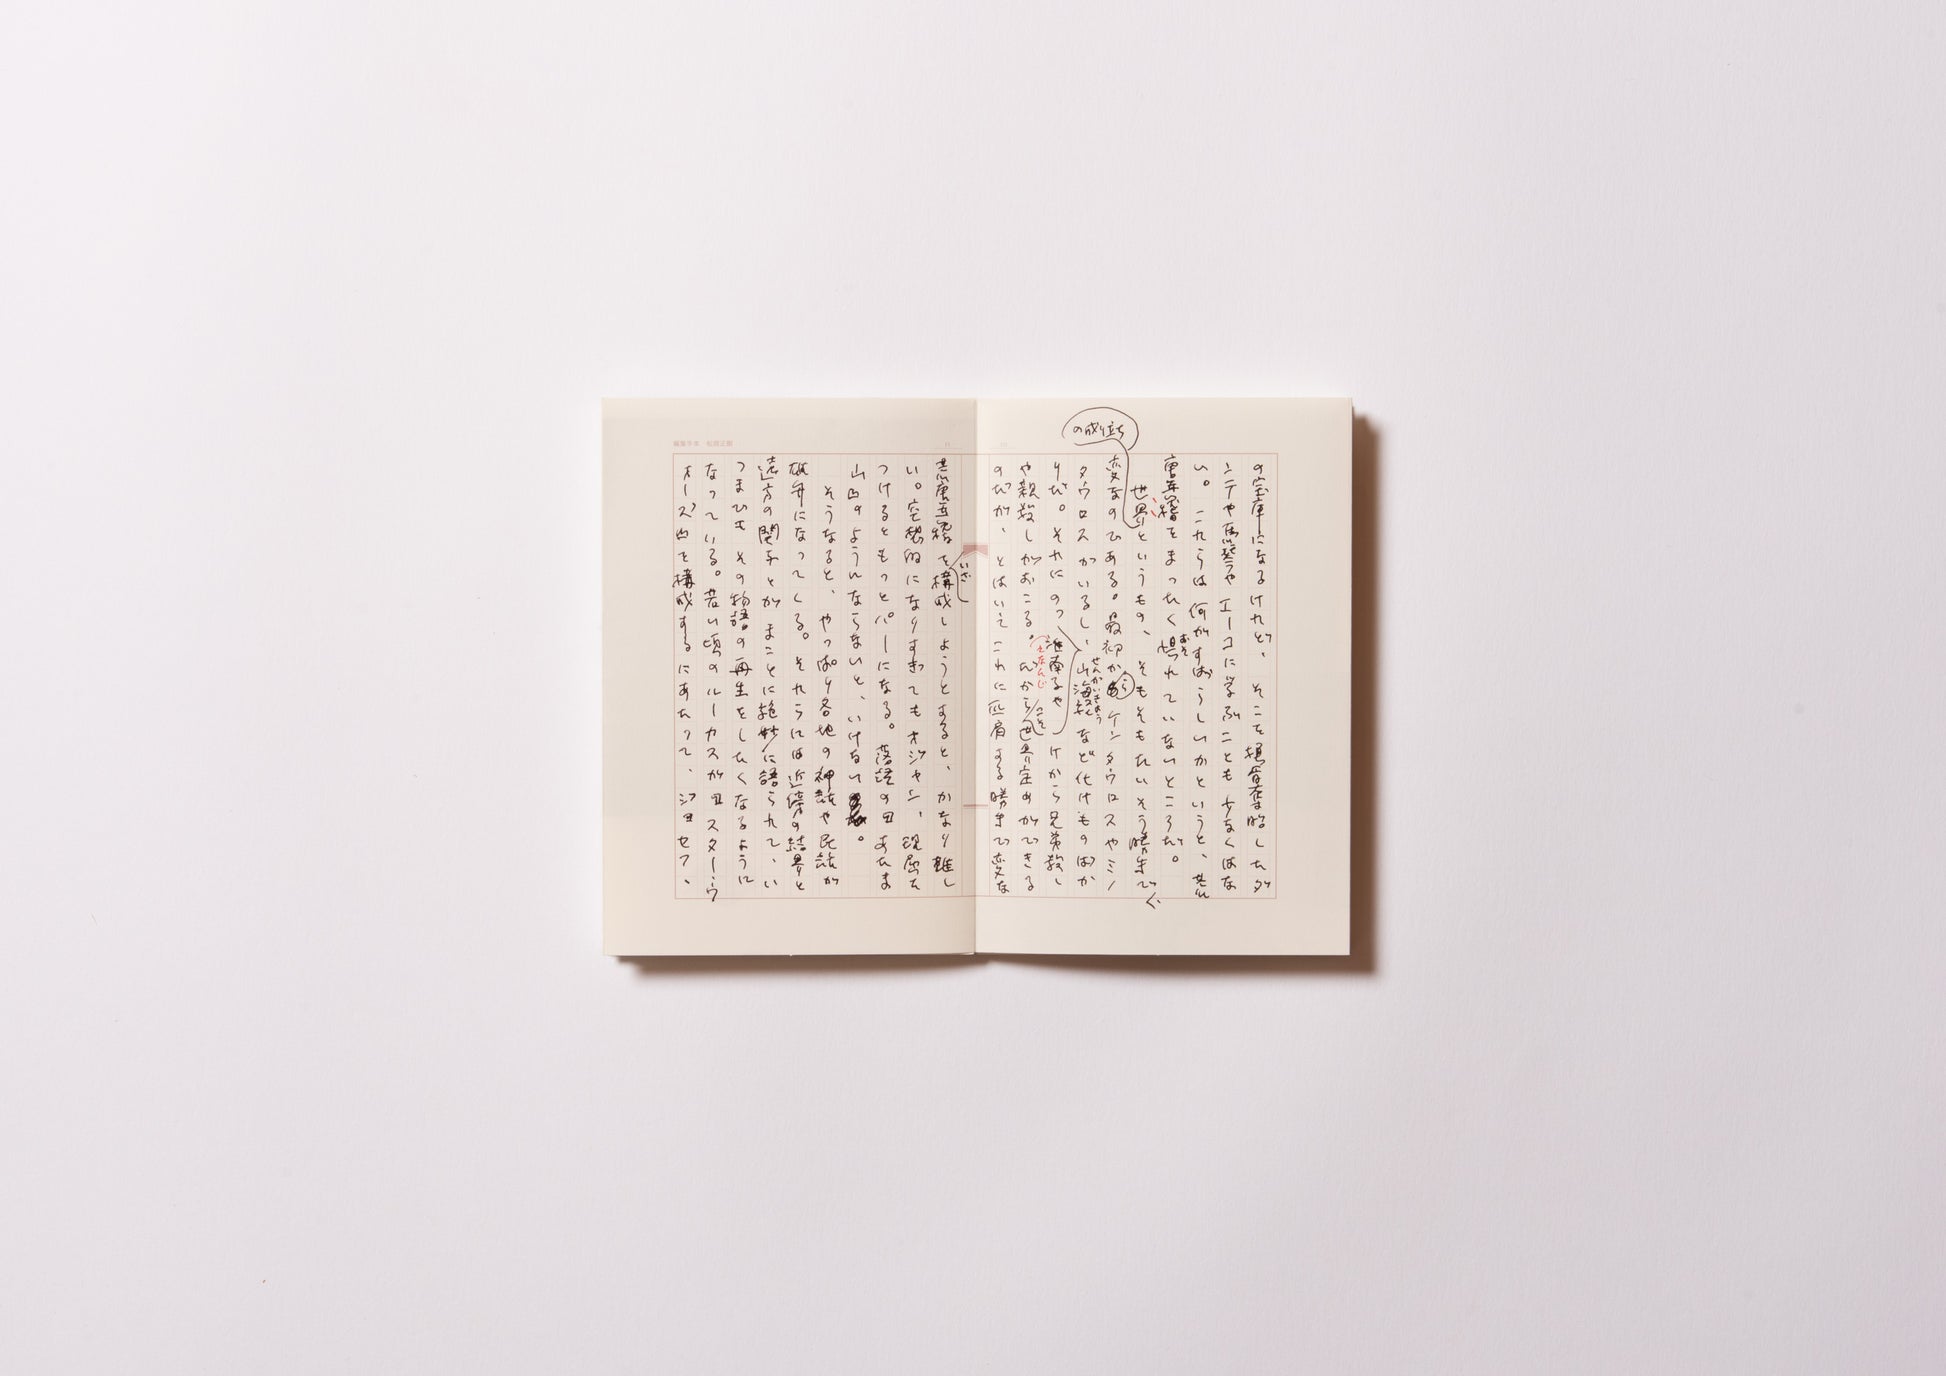 の成り立ち
の宝庫になるけれど、そこを換骨奪胎したダ
ンテや馬琴やエーコに学ぶことも少なくはな
い。これらは何がすばらしいかというと、荒
唐無稽をまったく惧れていないところだ。
おそ
世界というもの、そもそもたいそう勝手で
く
変なのである。最初からケンタウロスやミノ
タウロスがいるし、山海経など化けものばか
せんがいきょう
りだ。それにのっけから兄弟殺し
淮南子や
えなんじ
や親殺しがおこる。だから世界定めができる
こそ
のだが、とはいえこれに匹肩する勝手で変な
荒唐無稽を構成しようとすると、かなり難し
いざ
い。空想的になりすぎてもオジャン、理屈を
つけるともっとパーになる。落語のあたま
山のようにならないと、いけない。
そうなると、やっぱり各地の神話や民話が
雄弁になってくる。それらには近傍の結界と
遠方の関与とがまことに絶妙に語られて、い
つまでもその物語の再生をしたくなるように
なっている。若い頃のルーカスがスター・ウ
ォーズを構成するにあたって、ジョセフ、
編集手本 松岡正剛